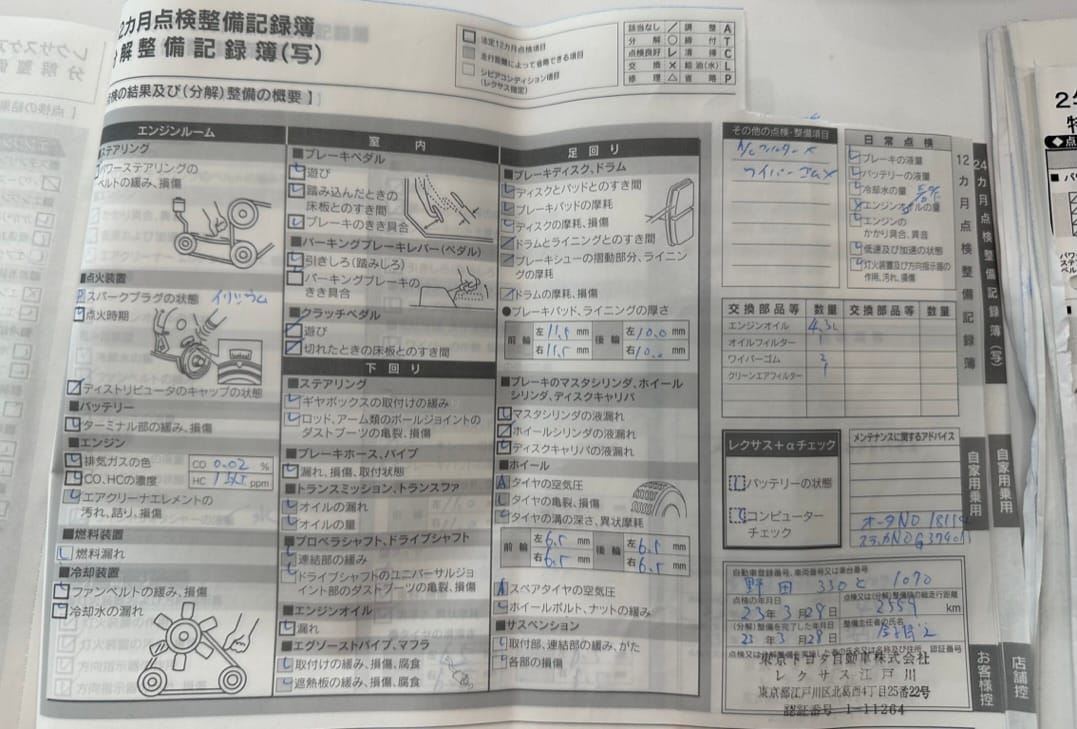 2カ月点検整備記録簿
分解整備記録簿(写)
点検の結果及び(分解)整備の概要】
法定12カ月点検項目
走行距離によって省略できる項目
シビアコンディション項目
(レクサス指定)
該当なし ／ 調整 A
分解 ○ 締付 T
点検良好 レ 清掃 C
交換 × 給油(水) L
修理 △ 省略 P
エンジンルーム
■ステアリング
パワーステアリングの
ベルトの緩み、損傷
■点火装置
P スパークプラグの状態 イリジウム
点火時期
ディストリビュータのキャップの状態
■バッテリー
ターミナル部の緩み、損傷
■エンジン
排気ガスの色
CO、HCの濃度
CO 0.02 %
HC ppm
エアクリーナエレメントの
汚れ、詰り、損傷
■燃料装置
燃料漏れ
■冷却装置
ファンベルトの緩み、損傷
冷却水の漏れ
室内
■ブレーキペダル
遊び
踏み込んだときの
床板とのすき間
ブレーキのきき具合
■パーキングブレーキレバー(ペダル)
引きしろ(踏みしろ)
パーキングブレーキの
きき具合
■クラッチペダル
遊び
切れたときの床板とのすき間
下回り
■ステアリング
ギヤボックスの取付けの緩み
ロッド、アーム類のボールジョイントの
ダストブーツの亀裂、損傷
■ブレーキホース、パイプ
漏れ、損傷、取付状態
■トランスミッション、トランスファ
オイルの漏れ
オイルの量
■プロペラシャフト、ドライブシャフト
連結部の緩み
ドライブシャフトのユニバーサルジョ
イント部のダストブーツの亀裂、損傷
■エンジンオイル
漏れ
■エグゾーストパイプ、マフラ
取付けの緩み、損傷、腐食
遮熱板の緩み、損傷、腐食
足回り
■ブレーキディスク、ドラム
ディスクとパッドとのすき間
ブレーキパッドの摩耗
ディスクの摩耗、損傷
ドラムとライニングとのすき間
ブレーキシューの摺動部分、ライニン
グの摩耗
ドラムの摩耗、損傷
●ブレーキパッド、ライニングの厚さ
前輪 左 11.5 mm 後輪 左 10.0 mm
右 11.5 mm 右 10.0 mm
■ブレーキのマスタシリンダ、ホイール
シリンダ、ディスクキャリパ
マスタシリンダの液漏れ
ホイールシリンダの液漏れ
ディスクキャリパの液漏れ
■ホイール
A タイヤの空気圧
タイヤの亀裂、損傷
タイヤの溝の深さ、異状摩耗
前輪 左 6.5 mm 後輪 左 6.5 mm
右 6.5 mm 右 6.5 mm
A スペアタイヤの空気圧
ホイールボルト、ナットの緩み
■サスペンション
取付部、連結部の緩み、がた
各部の損傷
その他の点検・整備項目
A/Cフィルター ×
ワイパーゴム ×
日常点検
ブレーキの液量
バッテリーの液量
冷却水の量
エンジンオイルの量
エンジンの
かかり具合、異音
低速及び加速の状態
灯火装置及び方向指示器の
作用、汚れ、損傷
交換部品等 数量 交換部品等 数量
エンジンオイル
オイルフィルター
ワイパーゴム
クリーンエアフィルター
レクサス+αチェック
バッテリーの状態
コンピューター
チェック
メンテナンスに関するアドバイス
自動車登録番号、車両番号又は車台番号
野田 330 と 1070
点検の年月日
23年3月28日
点検又は(分解)整備時の総走行距離
2554 km
(分解)整備を完了した年月日
23年3月28日
整備主任者の氏名
東京トヨタ自動車株式会社
レクサス江戸川
東京都江戸川区北葛西4丁目25番22号
認証番号 1-11264
12カ月点検整備記録簿
24カ月点検整備記録簿(写)
自家用乗用
自家用乗用
お客様控
店舗控